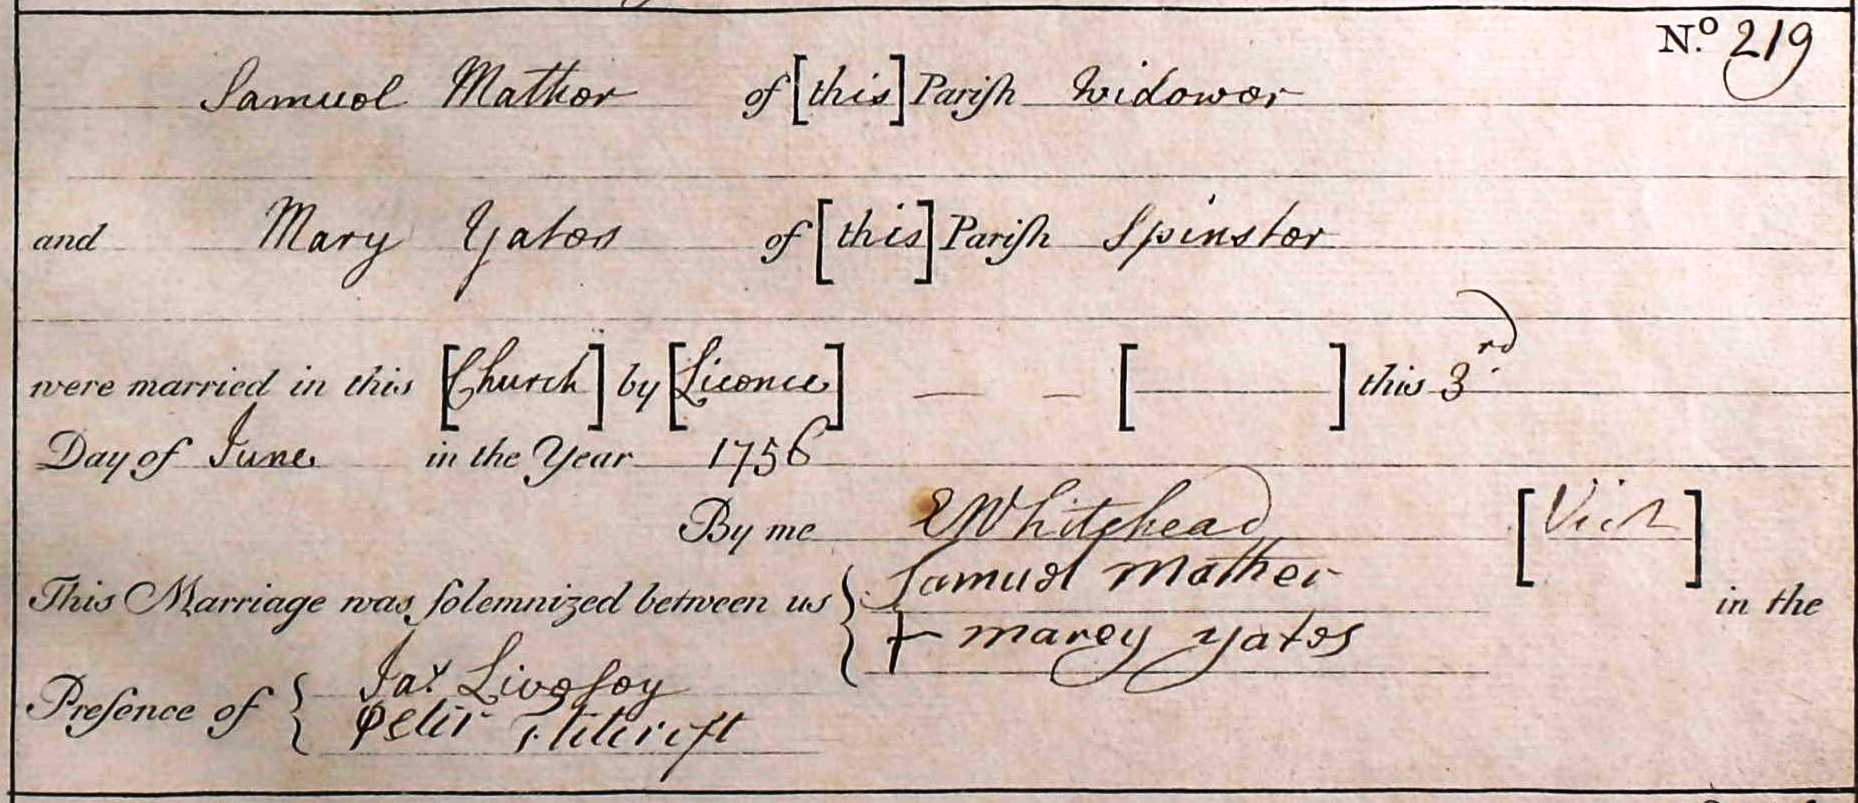 N.º 219
Samuel Mather of [this] Pariſh Widower
and Mary Yates of [this] Pariſh Spinster
were married in this [Church] by [Licence] — — [ — ] this 3.rd
Day of June in the Year 1756
By me E Whitehead [Vicr]
This Marriage was ſolemnized between us { Samuel Mather in the
+ marey yates
Preſence of { Jas Liveſey
Peter